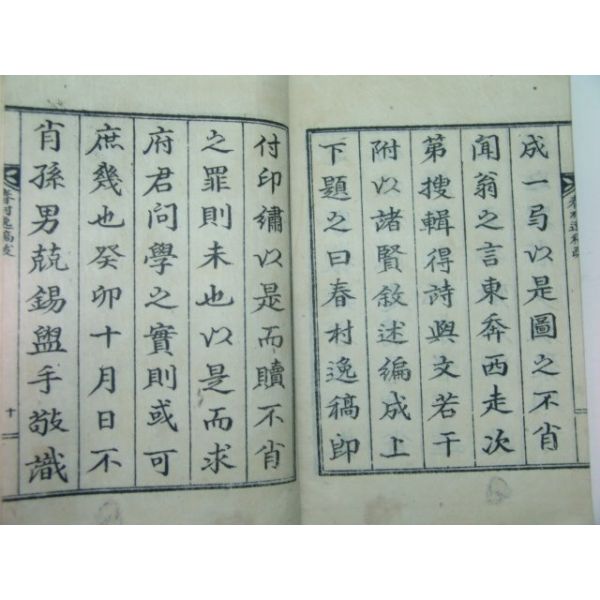 成一局以是圖之不肖
聞翁之言東奔西走次
第搜輯得詩與文若干
附以諸賢敘述編成上
下題之曰春村逸稿卽
付印繡以是而贖不肖
之罪則未也以是而求
府君问學之實則或可
庶幾也癸卯十月日不
肖孫男兢錫盥手敬識
春村逸稿跋
十